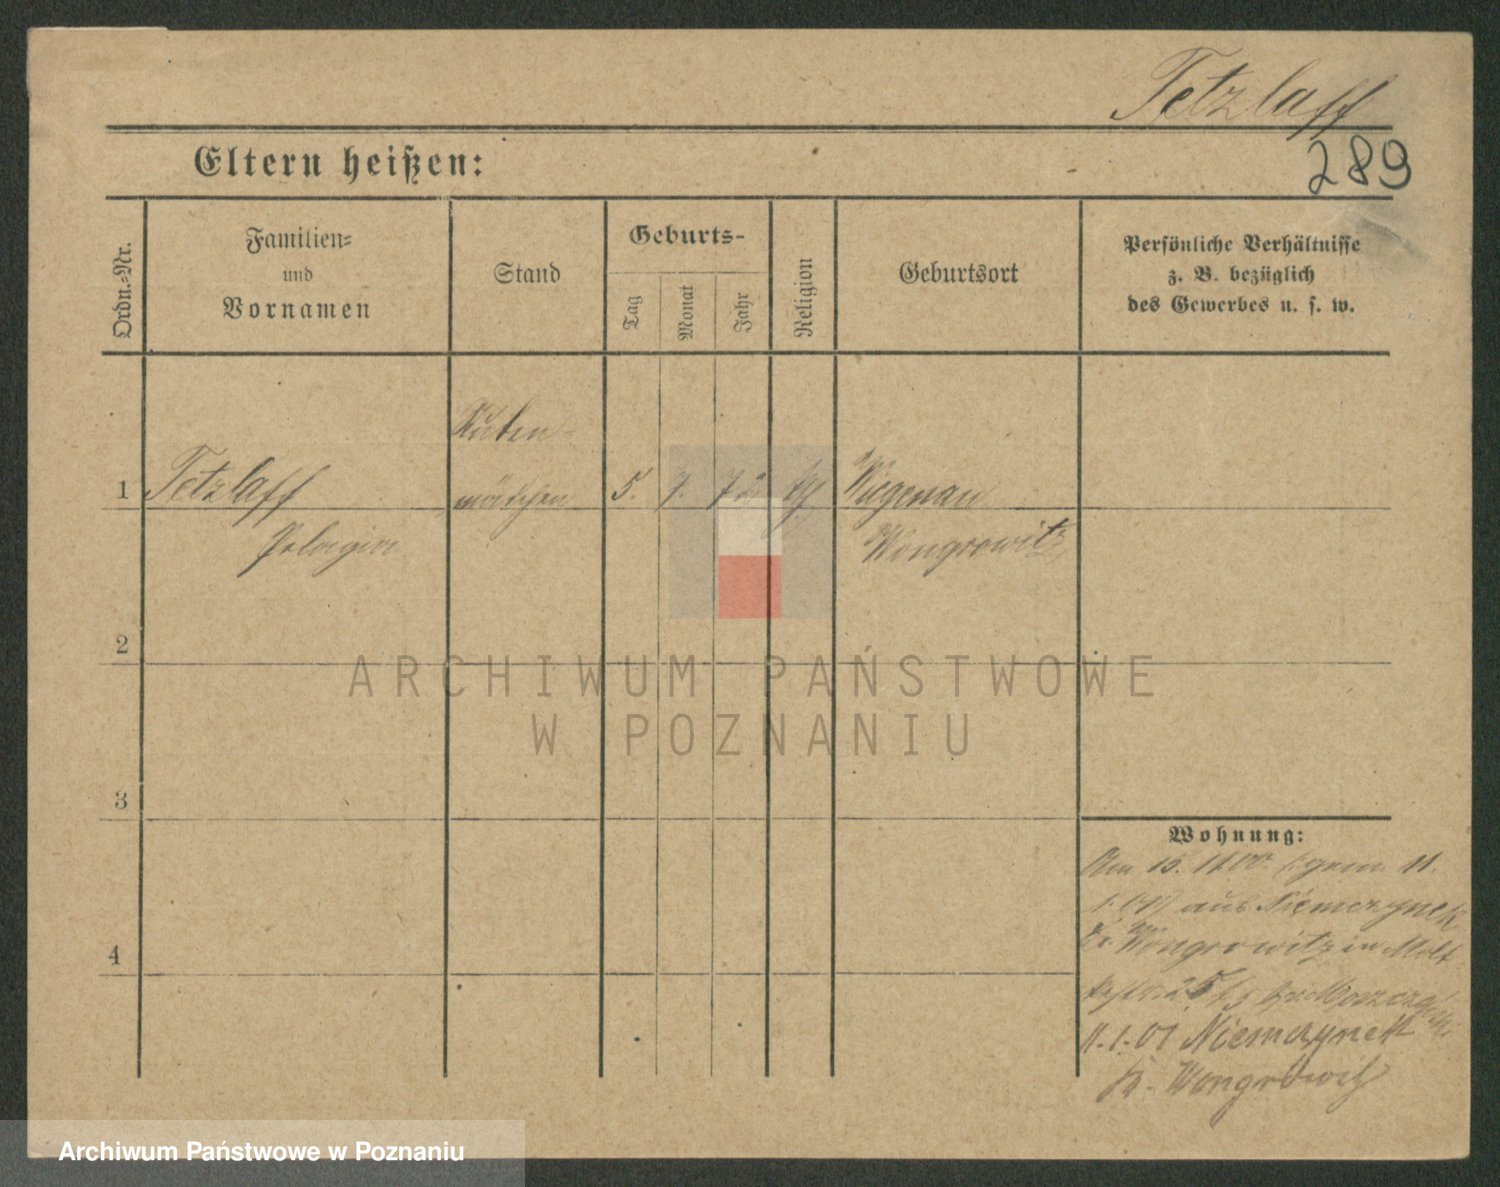 Tetzlaff
289
Eltern heißen:
Ordn.-Nr.
Familien-
und
Vornamen
Stand
Geburts-
Tag
Monat
Jahr
Religion
Geburtsort
Persönliche Verhältnisse
z. B. bezüglich
des Gewerbes u. s. w.
Stuben
1 Tetzlaff mädchen 5. 7. 72 Wiegenau
Pelagia Wongrowitz
2
3
4
Wohnung:
Am 15. 11.00.
aus Niemczynek
Kr. Wongrowitz in Molt
11.1.01 Niemczynek
Kr. Wongrowitz
ARCHIWUM PAŃSTWOWE
W POZNANIU
Archiwum Państwowe w Poznaniu